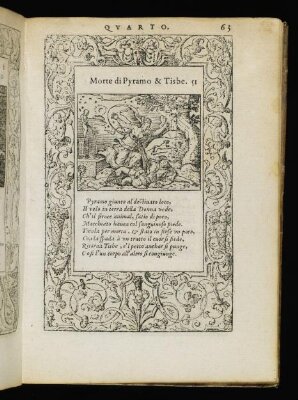 QVARTO. 63
Morte di Pyramo & Tisbe. 51
Pyramo giunto al destinato loco,
Il velo in terra della Donna vede,
Ch'il fiero animal, satio di poco,
Macchiato hauea col sanguinoso piede.
per morta, & stato in un poco,
Con la spada il cuor si fiede,
Ritorna Tisbe, e'l petto anchor si punge,
Cosi l'un corpo all'altro si congiunge.